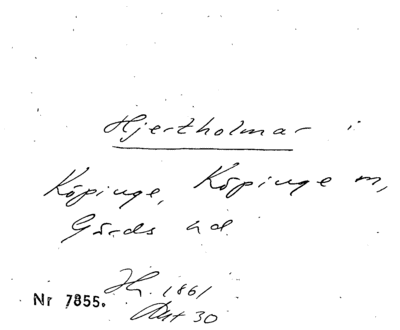 Hjertholmar i
Köpinge, Köpinge m,
Gärds hd
H. 1861
Akt 30
Nr 7855.